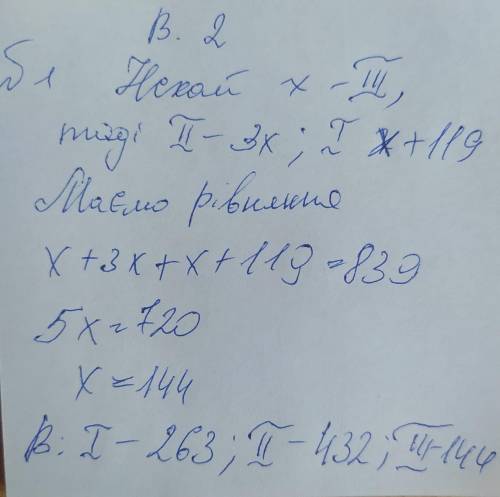 В. 2
№ 1 Нехай x - III,
тоді II - 3x; I x + 119
Маємо рівняння
x + 3x + x + 119 = 839
5x = 720
x = 144
В: I - 263; II - 432; III - 144